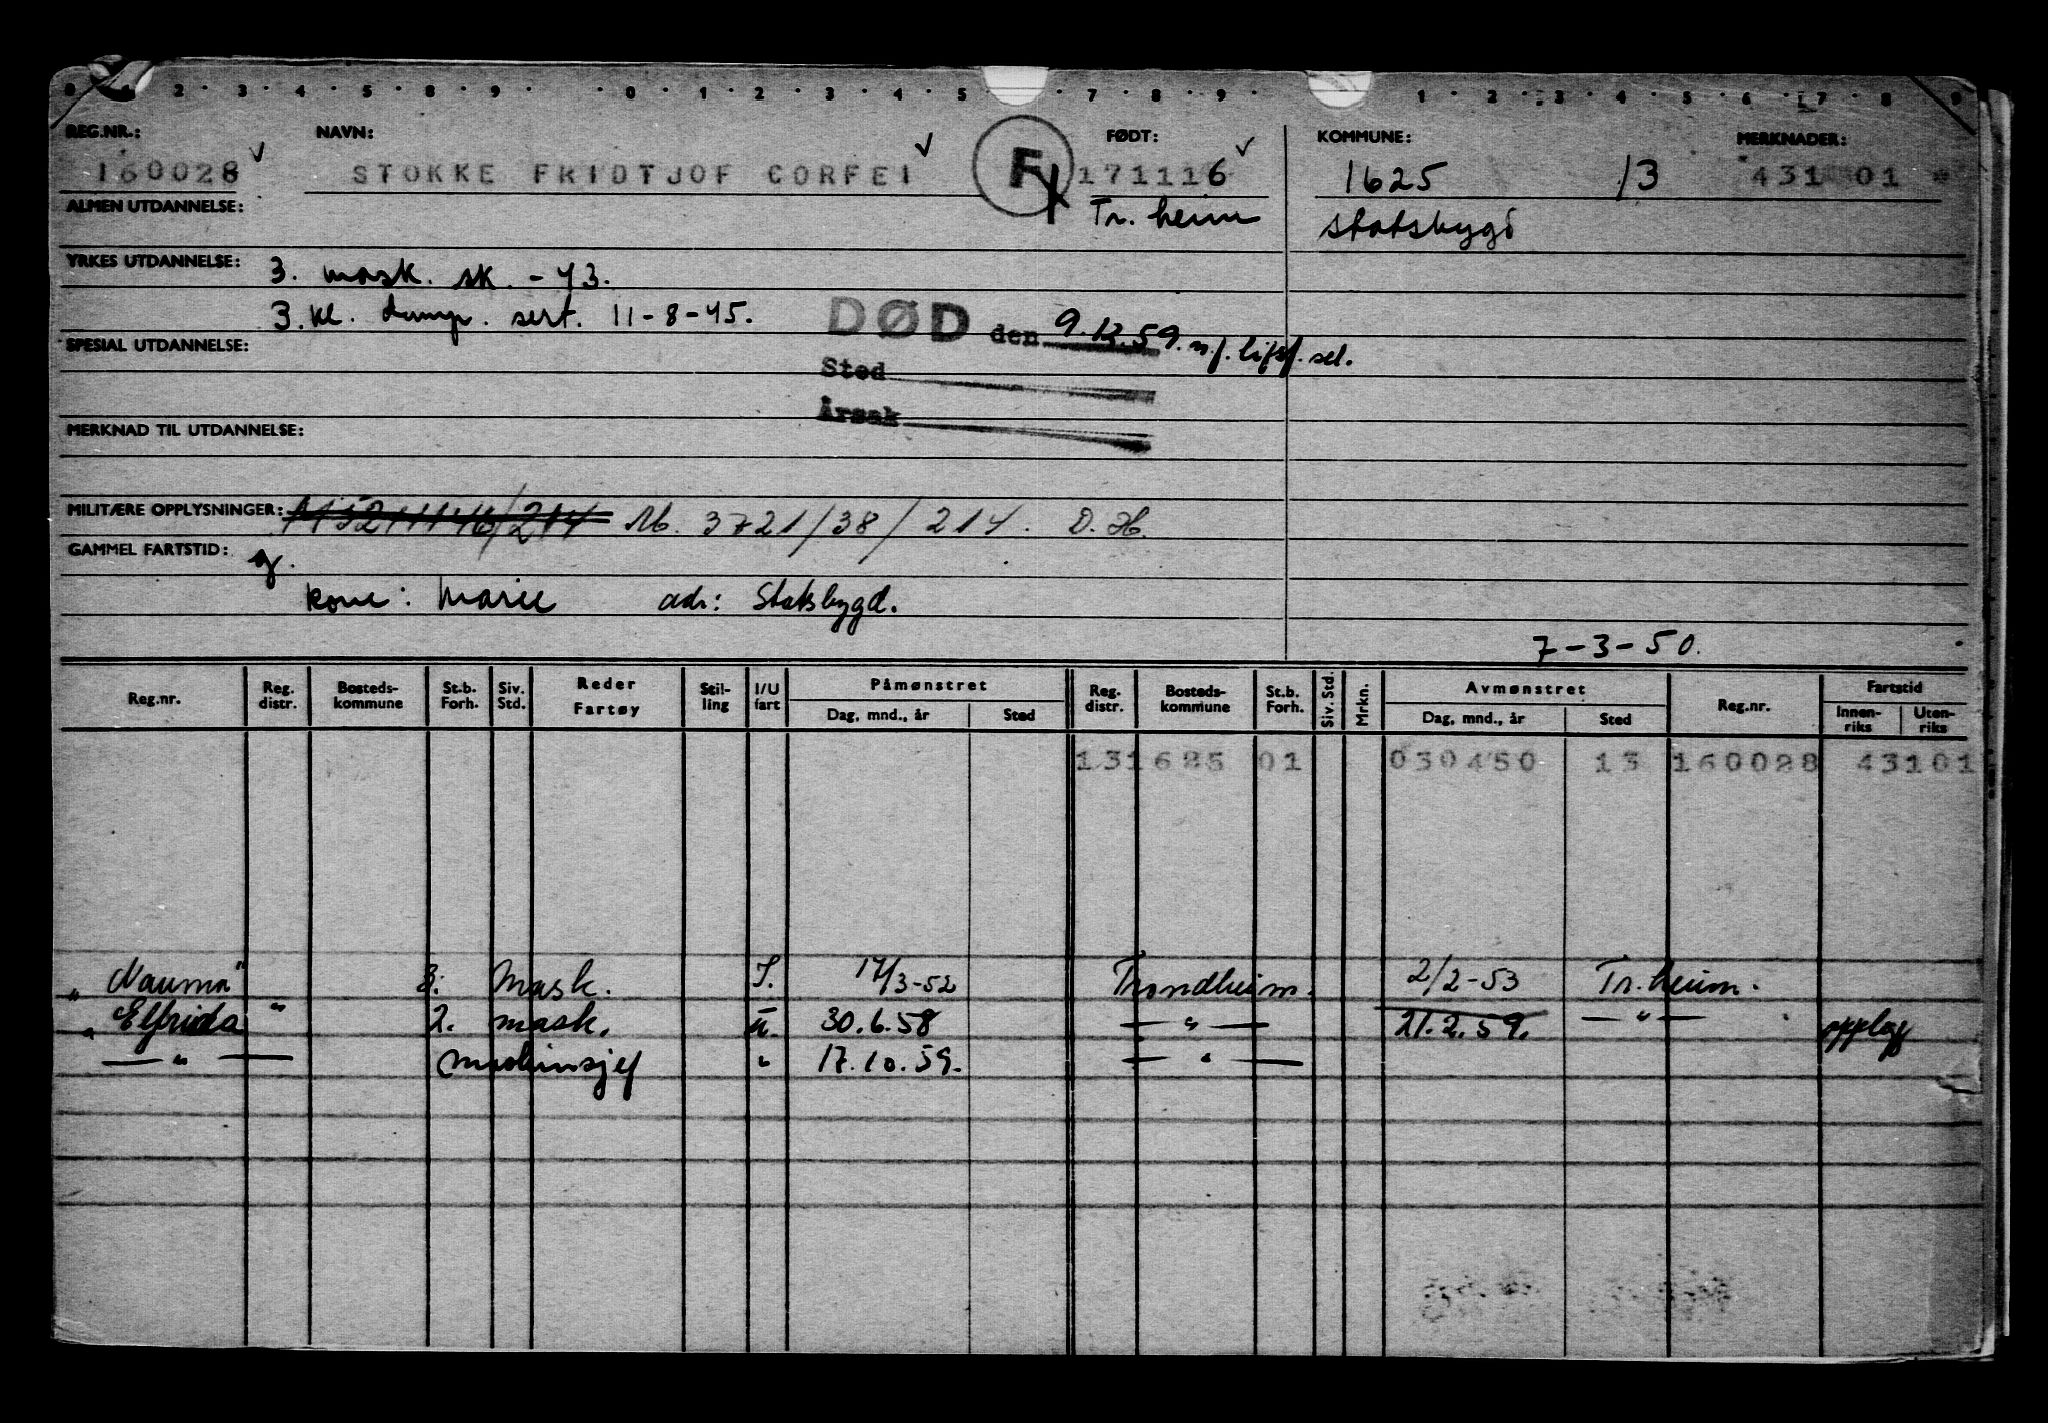 0 2 3 4 5 8 9 0 1 2 3 4 5 7 8 9 1 2 3 4 5 6 7 8 9
REG.NR.: NAVN: FØDT: KOMMUNE: MERKNADER:
160028 STOKKE FRIDTJOF CORFEI F 171116 1625 13 431 01
ALMEN UTDANNELSE: Tr. heim Statsbygd
YRKES UTDANNELSE: 3. mask. sk. - 43.
3. kl. damp. sert. 11-8-45.
DØD den 9.12.59. m/. lifst. sel.
SPESIAL UTDANNELSE:
Sted
Årsak
MERKNAD TIL UTDANNELSE:
MILITÆRE OPPLYSNINGER: M. 3721/38/214. D.H.
GAMMEL FARTSTID: g.
kone: Marie adr: Statsbygd.
7-3-50.
Reg.nr. Reg. distr. Bosteds-kommune St.b. Forh. Siv. Std. Reder Fartøy Stil-ling I/U fart Påmønstret Dag, mnd., år Sted Reg. distr. Bosteds-kommune St.b. Forh. Siv. Std. Mrkn. Avmønstret Dag, mnd., år Sted Reg.nr. Fartstid Innen-riks Uten-riks
131625 01 030450 13 160028 43101
"Nauma" 3. Mask. I. 17/3-52 Trondheim. 2/2-53 Tr.heim.
"Elfrida" 2. mask. u. 30.6.58 — " — 21.2.59. — " — opplag
— " — Maskinsjef " 17.10.59. — " —